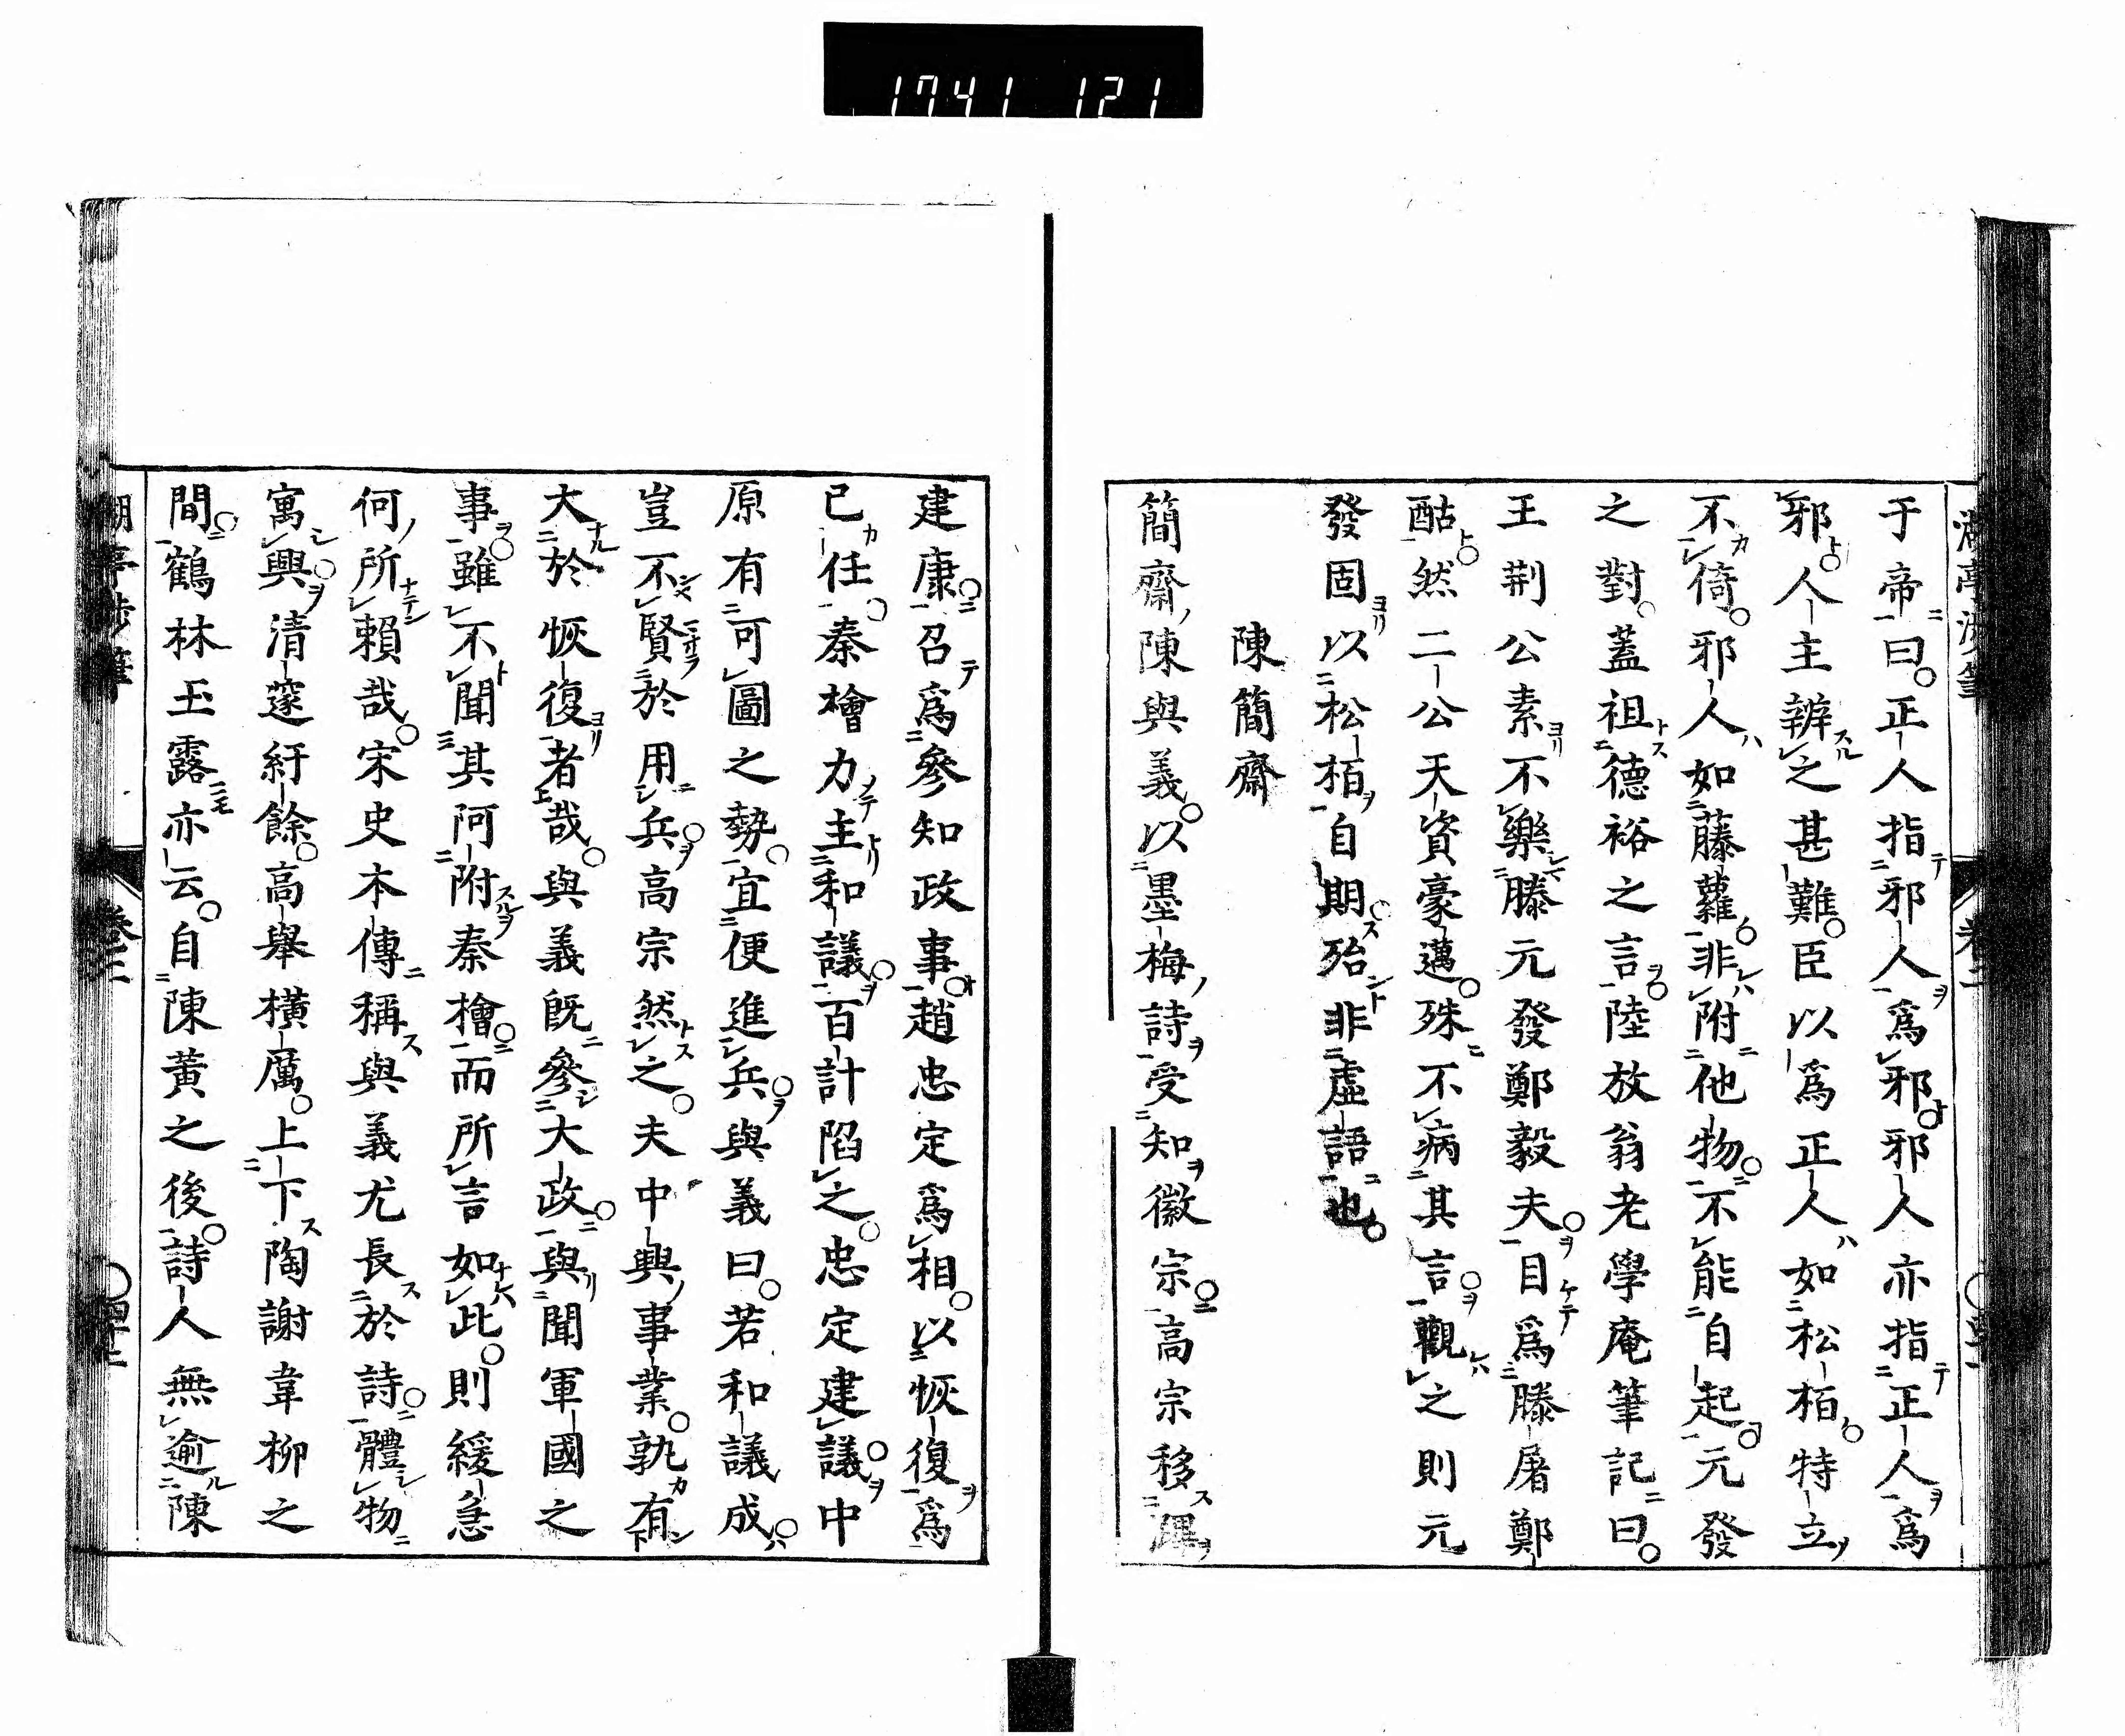 1741 121
于帝曰正人指邪人爲邪邪人亦指正人爲
邪人主辨之甚難臣以爲正人如松栢特立
不倚邪人如藤蘿非附他物不能自起元發
之對蓋祖德裕之言陸放翁老學庵筆記曰
王荆公素不樂滕元發鄭毅夫目爲滕屠鄭
酤然二公天資豪邁殊不病其言觀之則元
發固以松栢自期殆非虛語也
陳簡齋
簡齋陳與義以墨梅詩受知徽宗高宗移
建康召爲參知政事趙忠定爲相以恢復爲
已任秦檜力主和議百計陷之忠定建議中
原有可圖之勢宜便進兵與義曰若和議成
豈不賢於用兵高宗然之夫中興事業孰有
大於恢復者哉與義既參大政與聞軍國之
事雖不聞其阿附秦檜而所言如此則緩急
何所賴哉宋史本傳稱與義尤長於詩體物
寓興清邃紆餘高舉橫厲上下陶謝韋柳之
間鶴林玉露亦云自陳黃之後詩人無逾陳